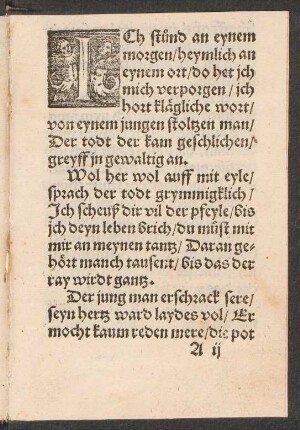 ICh stuͦnd an eynem
morgen/heymlich an
eynem ort/do het jch
mich verporgen/jch
hort klägliche wort/
von eynem jungen stoltzen man/
Der todt der kam geschlichen/
greyff jn gewaltig an.
Wol her wol auff mit eyle/
sprach der todt grymmigklich/
Ich scheuß dir vil der pfeyle/bis
ich deyn leben brich/du muͦst mit
mir an meynen tantz/Daran ge-
hört manch tausent/bis das der
ray wirdt gantz.
Der jung man erschrack sere/
seyn hertz ward laydes vol/Er
mocht kaum reden mere/die pot
A ij